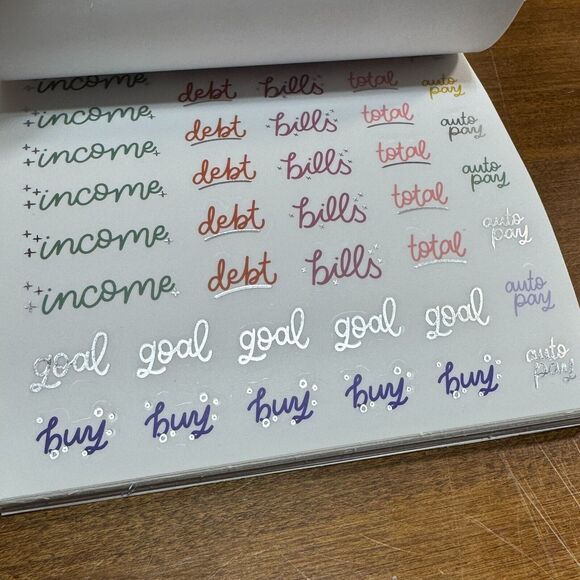 income debt bills total auto pay
income debt bills total auto pay
income debt bills total auto pay
income debt bills total auto pay
income debt bills total auto pay
goal goal goal goal goal auto pay
buy buy buy buy buy